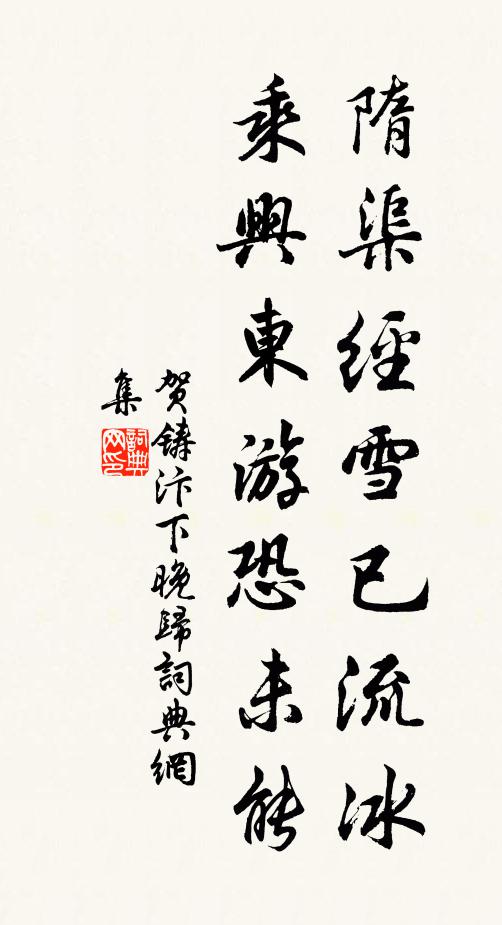 隋渠經雪已流冰
乘興東游恐未能
賀鑄汴下晚歸詞典網
集
詞典
网印